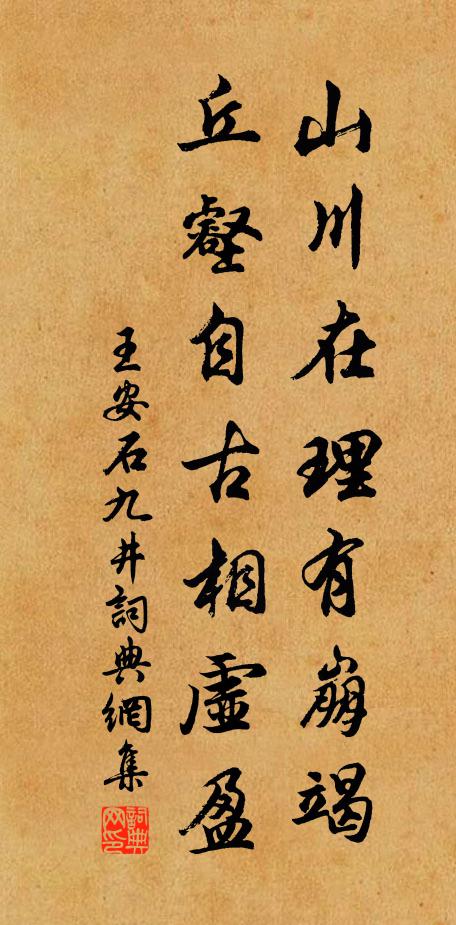 山川在理有崩竭
丘壑自古相虛盈
王安石九井詞典網集
詞典网印